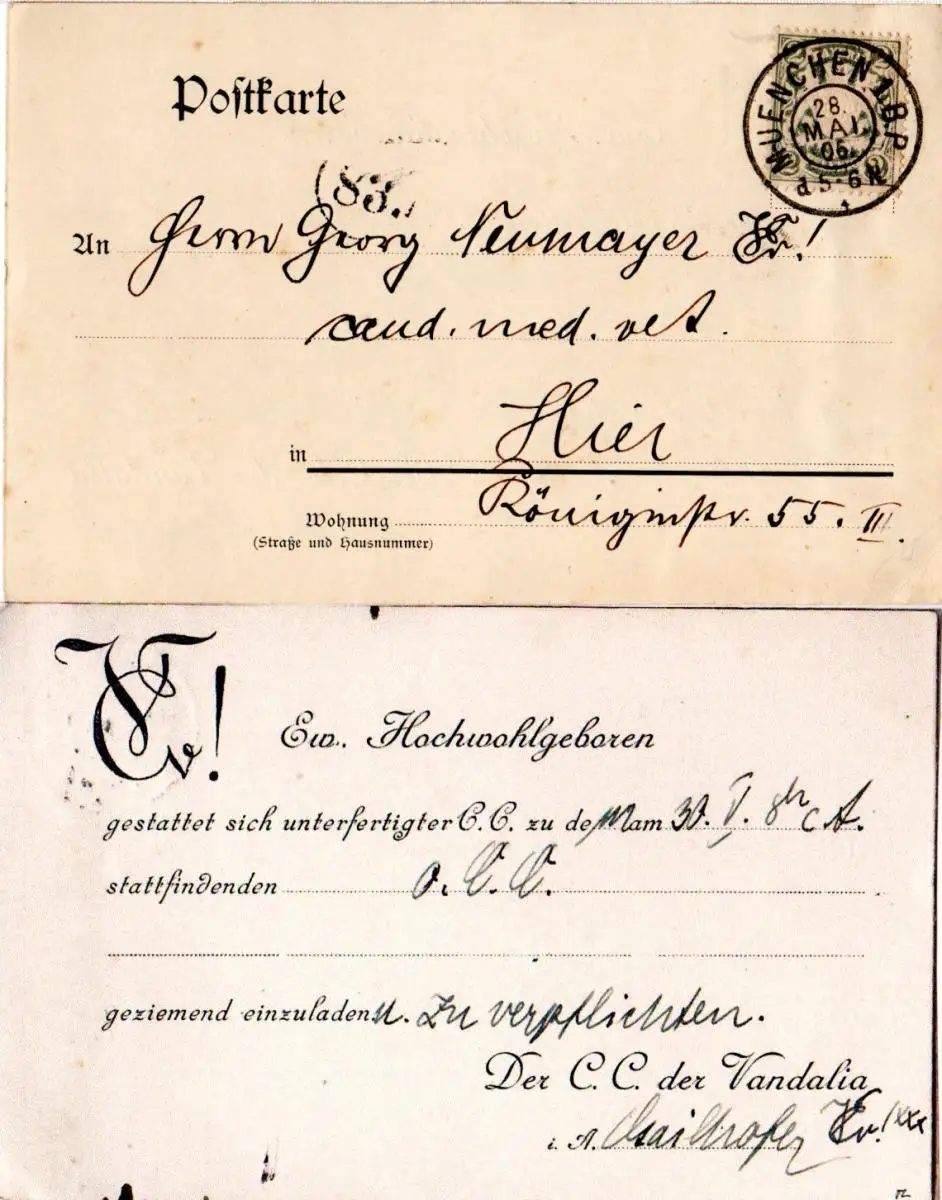 Postkarte
MUENCHEN 1. B.P.
28.
MAI
06
d 5-6 N
(83.)
An Herrn Georg Neumayer
cand. med. vet.
in Hier
Wohnung Königinstr. 55. III.
(Straße und Hausnummer)
Ew. Hochwohlgeboren
gestattet sich unterfertigter C.C. zu dem am 30. V. 8h c.t.
stattfindenden o. C. C.
geziemend einzuladen u. zu verpflichten.
Der C. C. der Vandalia
i. A. xxx